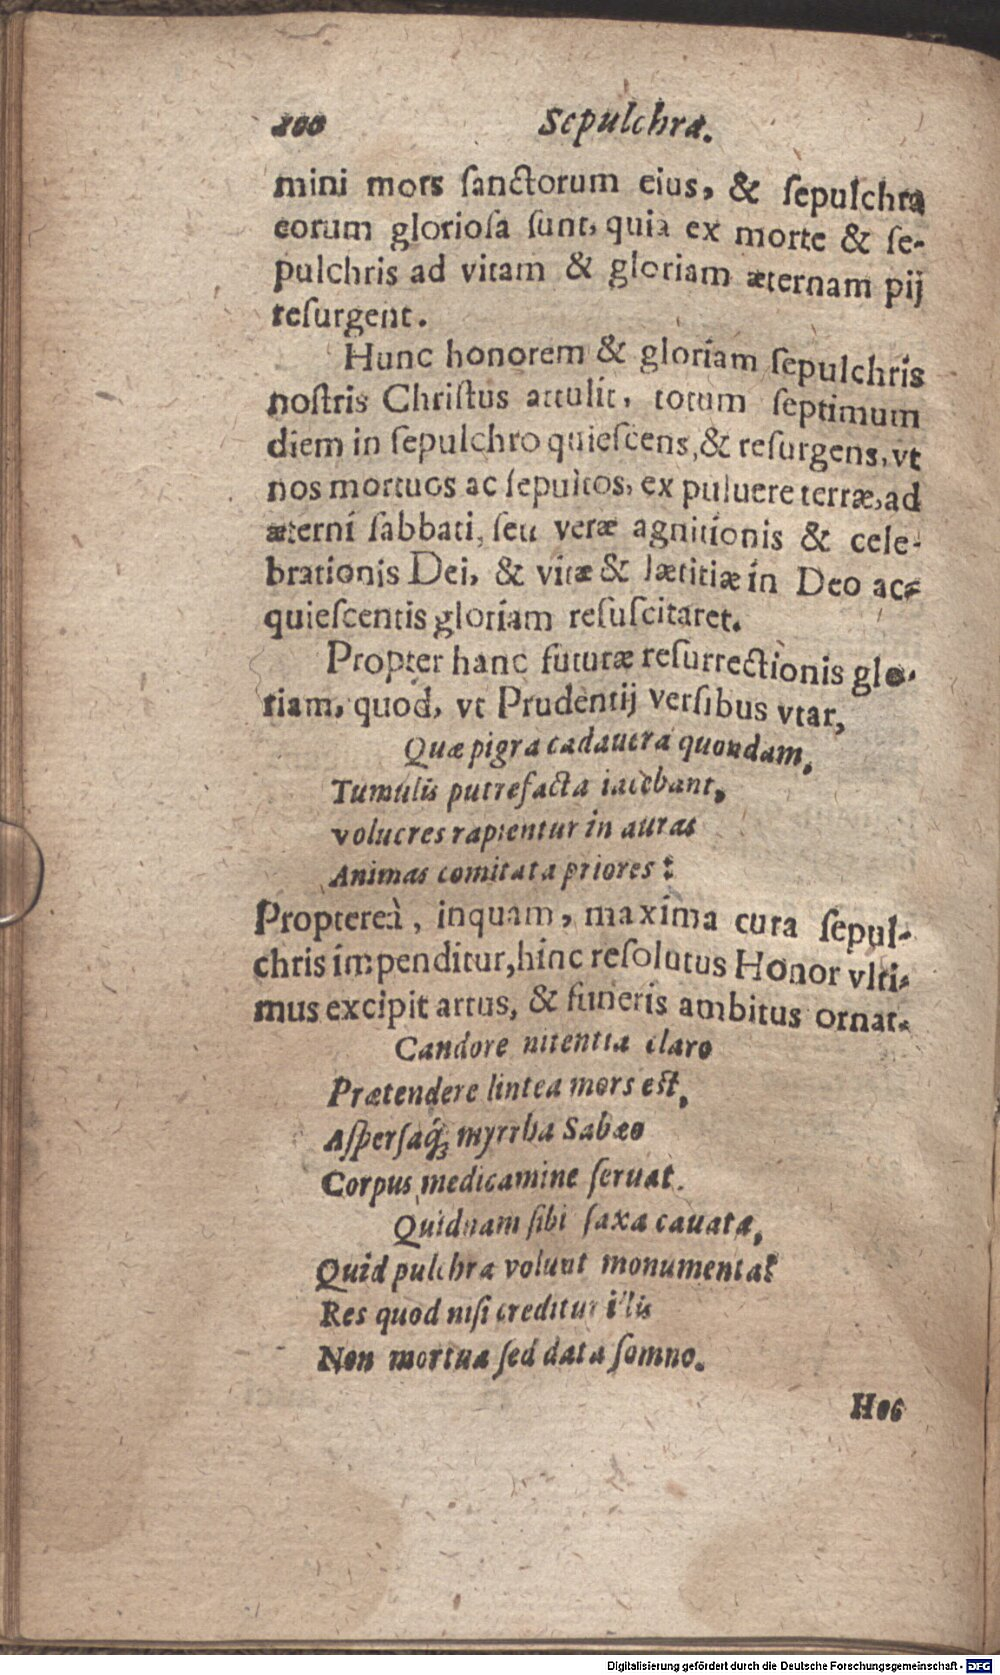 200 Sepulchra.
mini mors ſanctorum eius, & ſepulchra
eorum glorioſa ſunt, quia ex morte & ſe-
pulchris ad vitam & gloriam æternam pij
reſurgent.
Hunc honorem & gloriam ſepulchris
noſtris Chriſtus attulit, totum ſeptimum
diem in ſepulchro quieſcens, & reſurgens, vt
nos mortuos ac ſepultos, ex puluere terræ, ad
æterni ſabbati, ſeu veræ agnitionis & cele-
brationis Dei, & vitæ & lætitiæ in Deo ac-
quieſcentis gloriam reſuſcitaret.
Propter hanc futuræ reſurrectionis glo-
riam, quod, vt Prudentij verſibus vtar,
Quæ pigra cadauera quondam,
Tumulis putrefacta iacebant,
volucres rapientur in auras
Animas comitata priores:
Proptereà, inquam, maxima cura ſepul-
chris impenditur, hinc reſolutus Honor vlti-
mus excipit artus, & funeris ambitus ornat.
Candore nitentia claro
Prætendere lintea mors est,
Aſperſaq́ꝫ myrrha Sabæo
Corpus medicamine ſeruat.
Quidnam ſibi ſaxa cauata,
Quid pulchra volunt monumenta?
Res quod niſi creditur illis
Non mortua ſed data ſomno.
Hoc
Digitalisierung gefördert durch die Deutsche Forschungsgemeinschaft - DFG